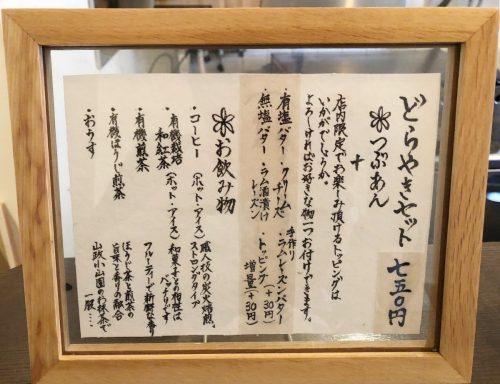 どらやきセット 七五〇円
つぶあん
+
店内限定でお楽しみ頂けるトッピングは
いかがでしょうか。
よろしければお好きな物一つお付けできます。
・有塩バター ・クリームチーズ ・手作りラムレーズンバター(+30円)
・無塩バター ・ラム酒漬けレーズン ・トッピング増量(+30円)
お飲み物
・コーヒー(ホット・アイス) 職人技の炭火焙煎。ストロングタイプ
・有機栽培和紅茶(ホット・アイス) 和菓子との相性はバッチリです
・有機煎茶 フルーティーで新鮮な香り
・有機ほうじ煎茶 ほうじ茶と煎茶の旨味と香りの融合
・おうす 山政小山園のお抹茶で一服‥‥